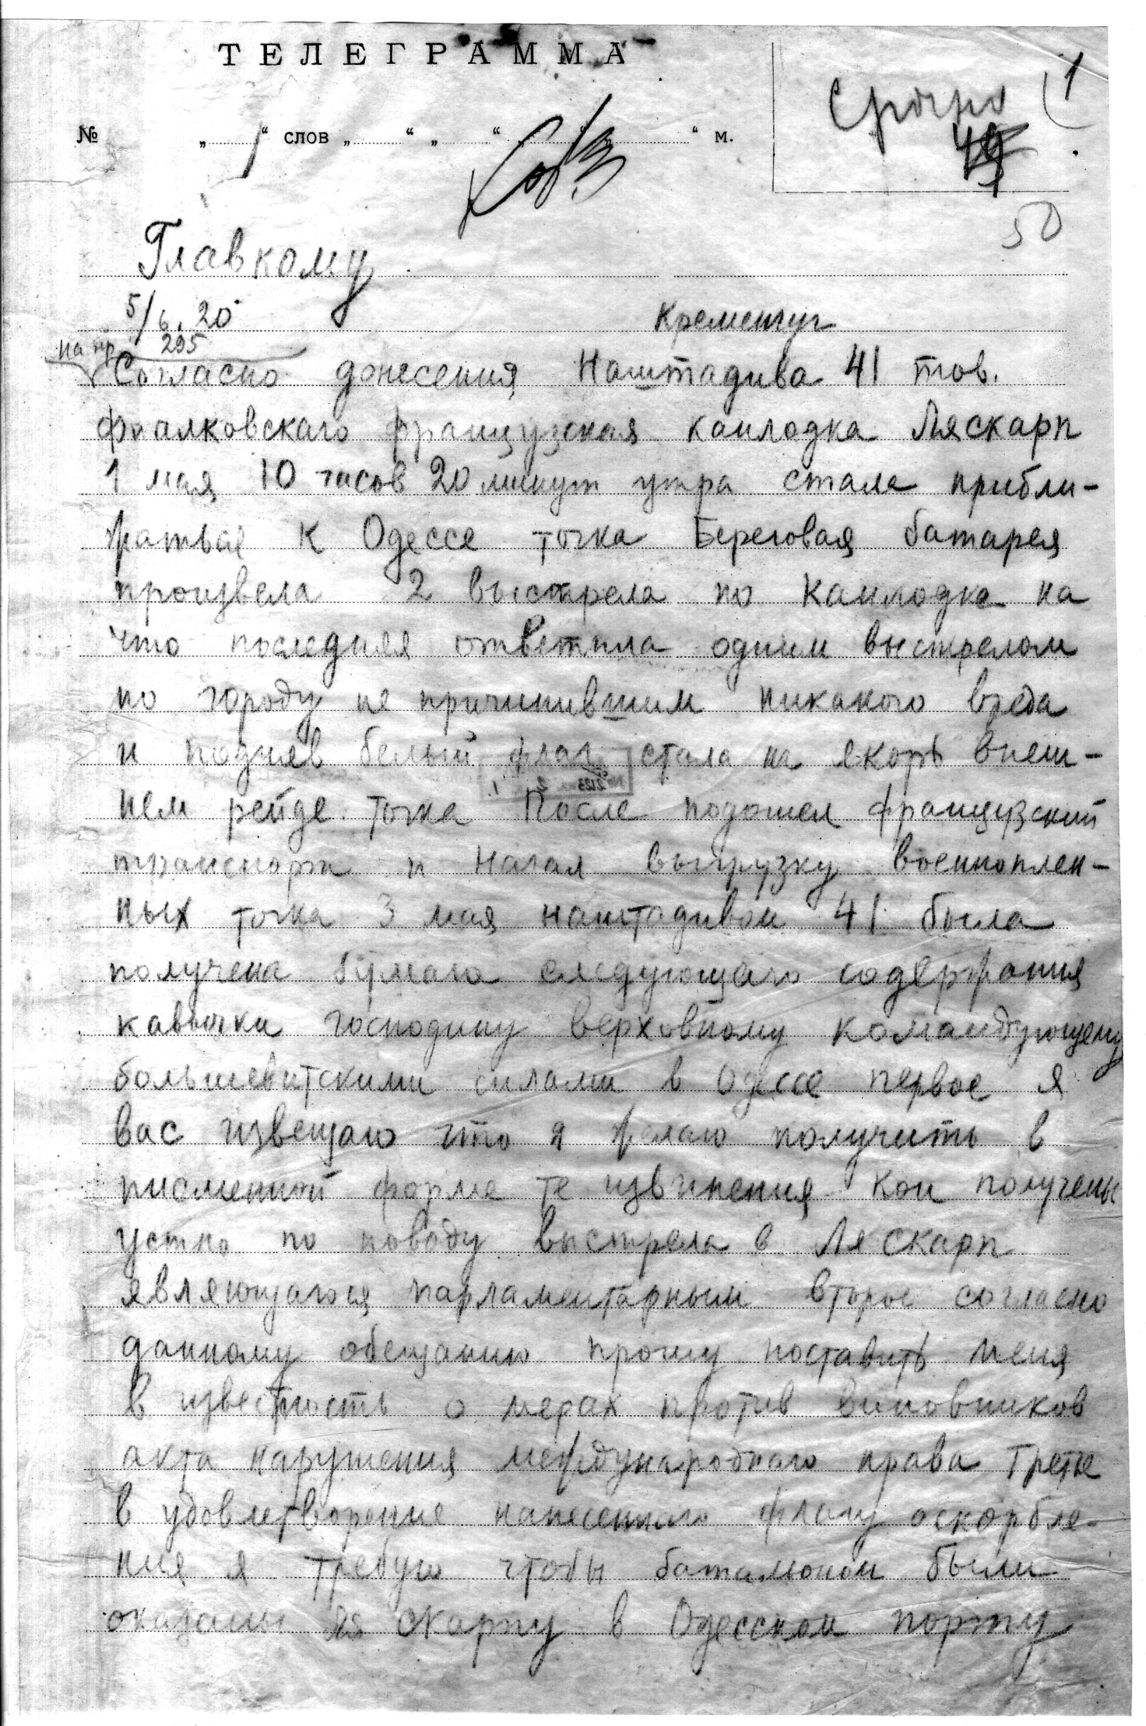 ТЕЛЕГРАММА
Срочно 1
№ „ “ слов „ “ „ “ „ “ м.
49
50
Главкому
5/6. 20
Кременчуг
на № 295
Согласно донесения Наштадива 41 тов.
Фиалковскаго французская канлодка Ляскарп
1 мая 10 часов 20 минут утра стала прибли-
жаться к Одессе точка Береговая батарея
произвела 2 выстрела по канлодке на
что последняя ответила одним выстрелом
по городу не причинившим никакого вреда
и подняв белый флаг стала на якорь внеш-
нем рейде точка После подошел французский
транспорт и начал выгрузку военноплен-
ных точка 3 мая наштадивом 41 была
получена бумага следующаго содержания
кавычки господину верховному командующему
большевитскими силами в Одессе первое я
вас извещаю что я желаю получить в
писменной форме те извинения кои получены
устно по поводу выстрела в Ляскарп
являющагося парламентарным второе согласно
данному обещанию прошу поставить меня
в известность о мерах против виновников
акта нарушения международнаго права третье
в удовлетворение нанесеннаго флагу оскорбле-
ния я требую чтобы батальоном были
оказаны Ляскарпу в Одесском порту